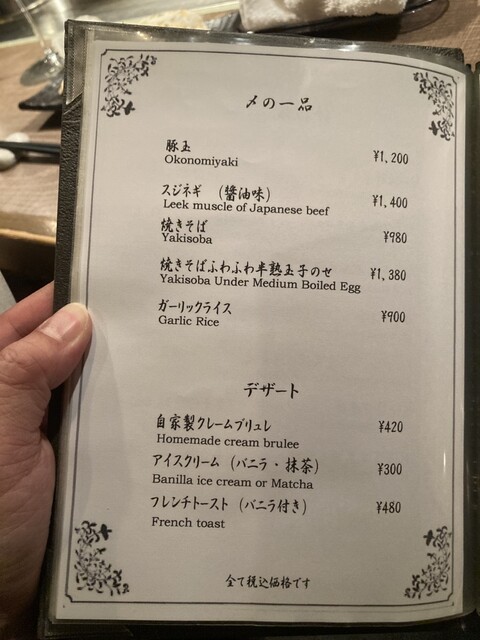 〆の一品
豚玉 ¥1,200
Okonomiyaki
スジネギ (醤油味) ¥1,400
Leek muscle of Japanese beef
焼きそば ¥980
Yakisoba
焼きそばふわふわ半熟玉子のせ ¥1,380
Yakisoba Under Medium Boiled Egg
ガーリックライス ¥900
Garlic Rice
デザート
自家製クレームブリュレ ¥420
Homemade cream brulee
アイスクリーム (バニラ・抹茶) ¥300
Banilla ice cream or Matcha
フレンチトースト (バニラ付き) ¥480
French toast
全て税込価格です